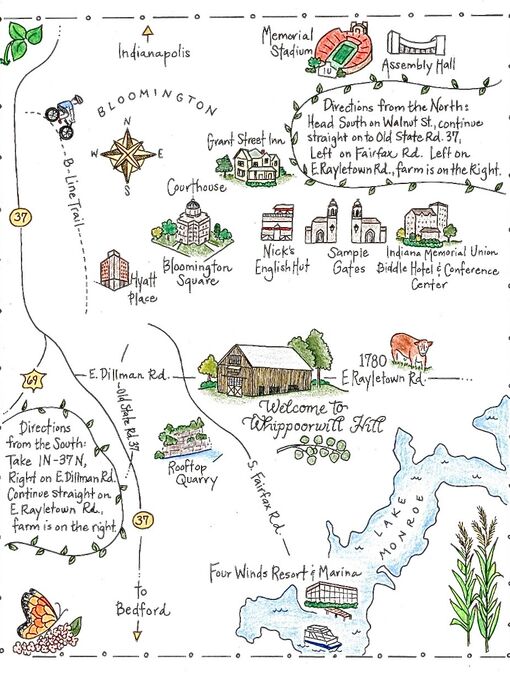 Indianapolis
Memorial
Stadium
IU
Assembly Hall
BLOOMINGTON
N
W
E
S
B-Line Trail
Directions from the North:
Head South on Walnut St., continue
straight on to Old State Rd. 37,
Left on Fairfax Rd. Left on
E. Rayletown Rd., farm is on the Right.
Grant Street Inn
Courthouse
37
Bloomington
Square
Nick's
English Hut
Sample
Gates
Indiana Memorial Union
Biddle Hotel & Conference
Center
Hyatt
Place
1780
E. Rayletown Rd.
69
E. Dillman Rd.
Old State Rd. 37
Welcome to
Whippoorwill Hill
Directions
from the South:
Take IN-37 N,
Right on E. Dillman Rd.
Continue straight on
E. Rayletown Rd.,
farm is on the right.
Rooftop
Quarry
S. Fairfax Rd.
37
LAKE
MONROE
Four Winds Resort & Marina
to
Bedford